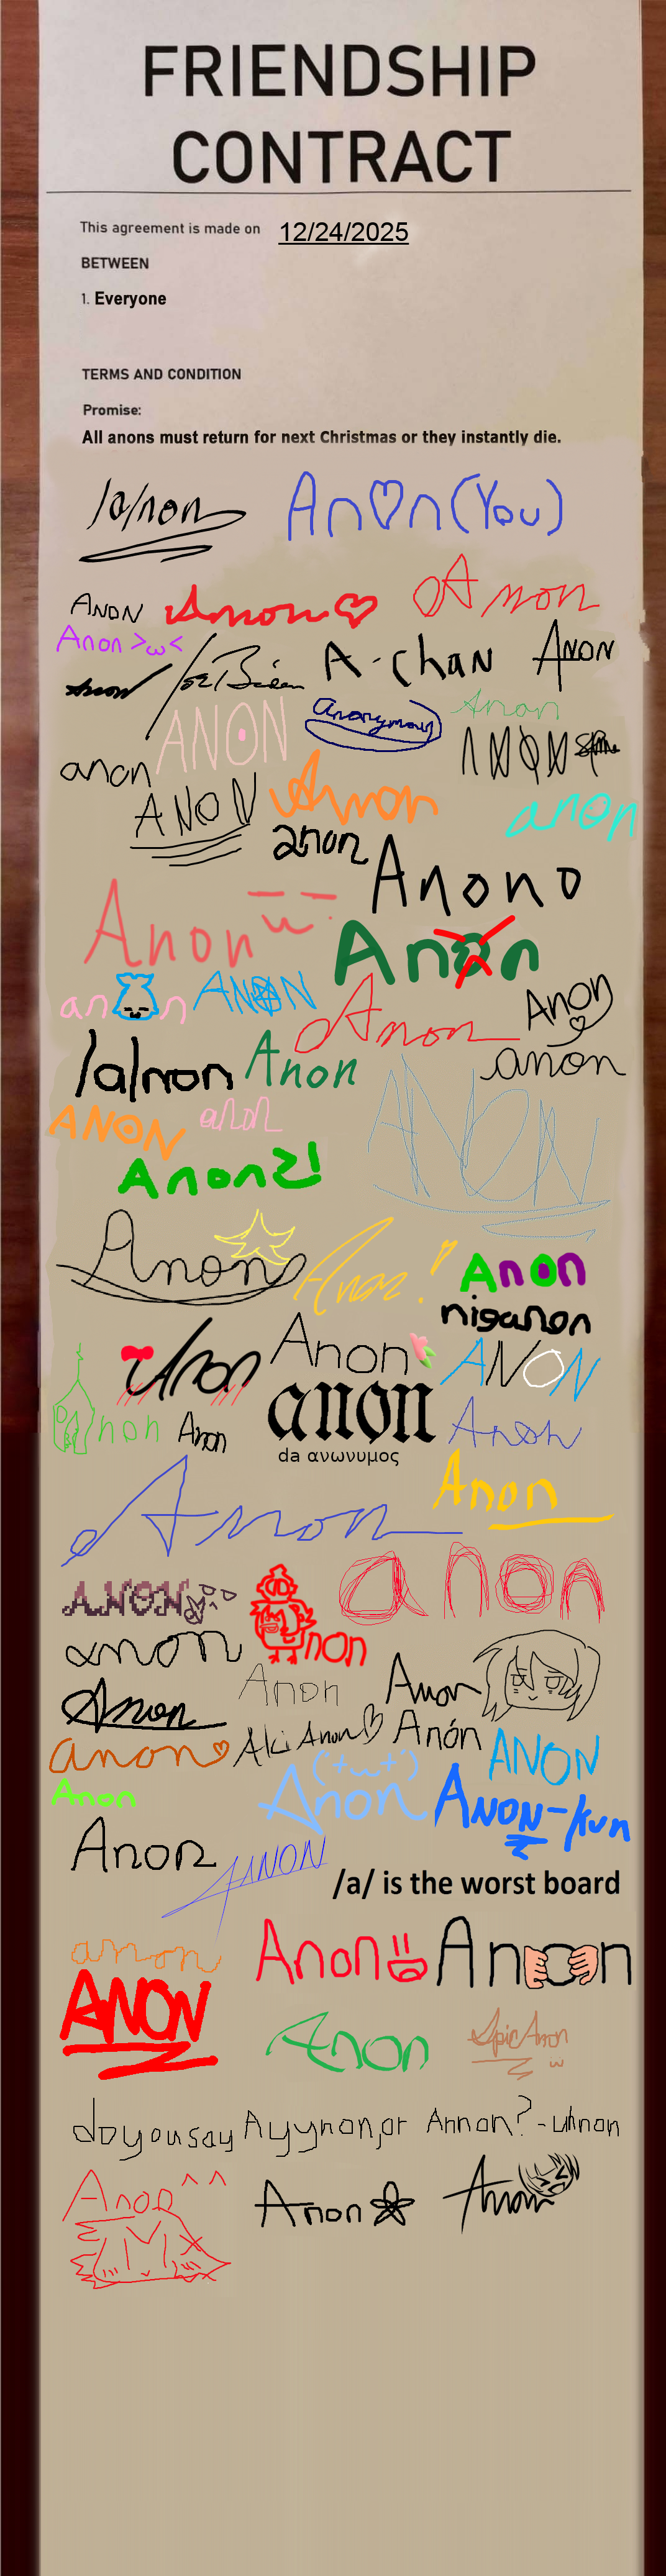 FRIENDSHIP
CONTRACT
This agreement is made on 12/24/2025
BETWEEN
1. Everyone
TERMS AND CONDITION
Promise:
All anons must return for next Christmas or they instantly die.
/a/non
An♡n (You)
ANON
Anon♡
Anon
Anon >ω<
Anon
Joe Biden
A-chan
ANON
ANON
Anonymous
Anon
anon
ANON
ANON
Anon
anon
anon
Anono
Anon
Anon
an n
ANON
Anon
Anon
/a/non
Anon
anon
ANON
anon
ANON
Anon2!
Anon
Anon!
Anon
niganon
Anon
Anon
ANON
non
Anon
anon
da ανωνυμος
Anon
Anon
Anon
ANON
non
anon
anon
Anon
Anon
Anon
anon♡
Aki Anon♡
Anón
ANON
Anon
('+ω+')
Anon
ANON-kun
Anon
ANON
/a/ is the worst board
anon
Anon
Anon
ANON
Anon
Epic Anon
do you say Ayynon, or Annon? -
Anon ^^
Anon
Anon